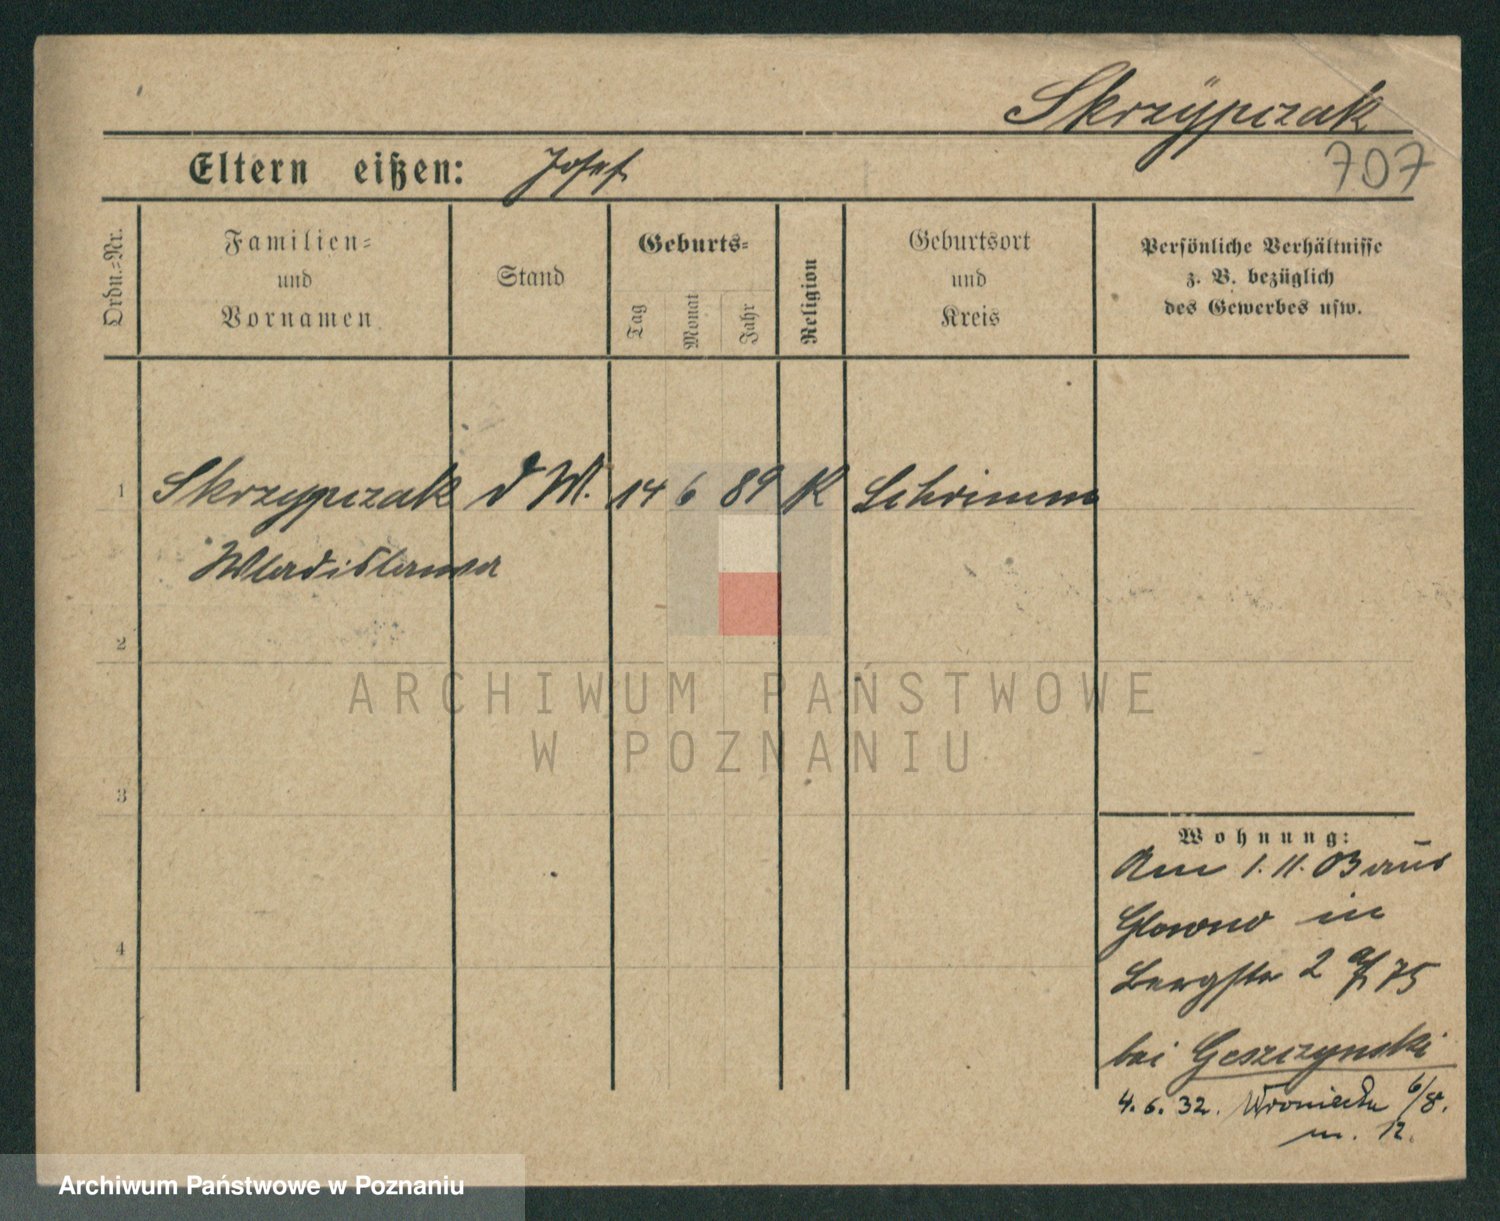 Skrzÿpczak
Eltern eißen: Josef
707
Ordn.-Nr.
Familien-
und
Vornamen
Stand
Geburts-
Tag
Monat
Jahr
Religion
Geburtsort
und
Kreis
Persönliche Verhältnisse
z. B. bezüglich
des Gewerbes usw.
1 Skrzypczak d M. 14 6 89 K Schrimm
Wladislawa
2
ARCHIWUM PAŃSTWOWE
W POZNANIU
3
4
Wohnung:
Am 1.11.03 aus
Glowno in
Bergstr 2 75
bei Goszczynski
4. 6. 32. Wroniecka 6/8.
m. 12.
Archiwum Państwowe w Poznaniu